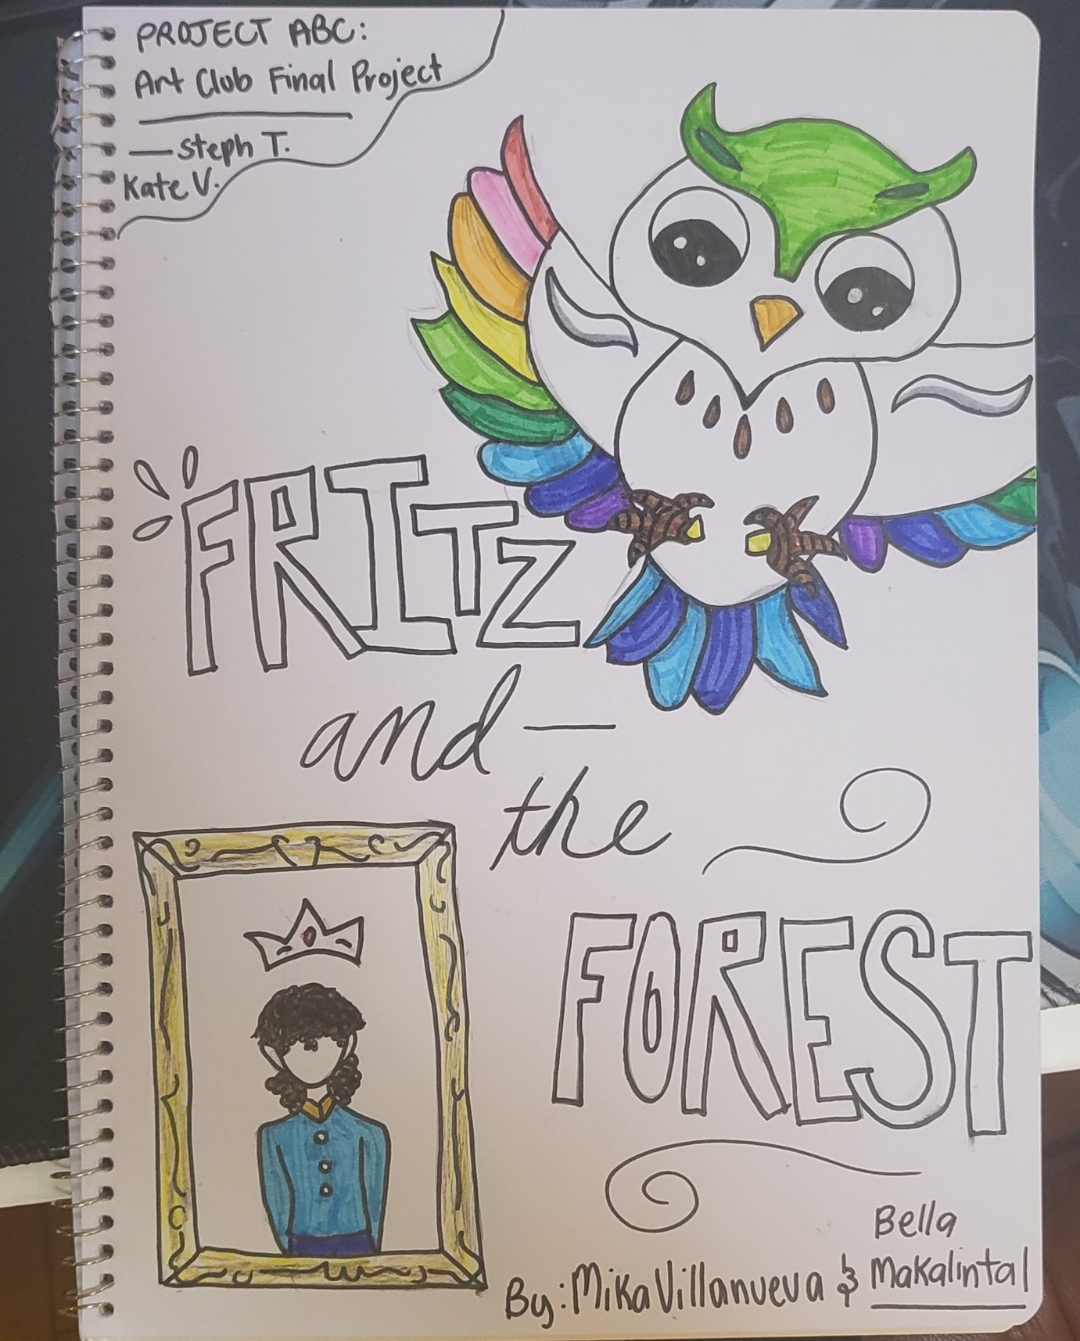 PROJECT ABC:
Art Club Final Project
— Steph T.
Kate V.
FRITZ
and —
the
FOREST
By: Mika Villanueva &
Bella
Makalintal